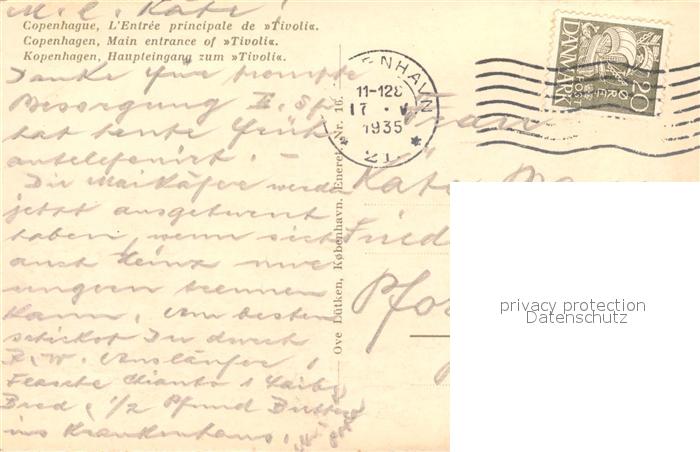 M. l. Käte!
Copenhague, L'Entrée principale de »Tivoli«.
Copenhagen, Main entrance of »Tivoli«.
Kopenhagen, Haupteingang zum »Tivoli«.
Danke für prompte
Besorgung
hat heute früh
antelefoniert. –
Die Maikäfer werden
jetzt ausgetwent
haben, wenn sich
auch Heinz nur
ungern trennen
kann. Am besten
schickst Du durch
B. W. Ausläufer,
Flasche Chianti 1 Laib
Brod, 1/2 Pfund Butter
ins Krankenhaus.
Ove Lütken, København. Eneret. Nr. 16.
ENHAVN
11-12
17. V
1935
21
DANMARK
20
ØRE
Frau
Käte
Fried
Pfo
privacy protection
Datenschutz